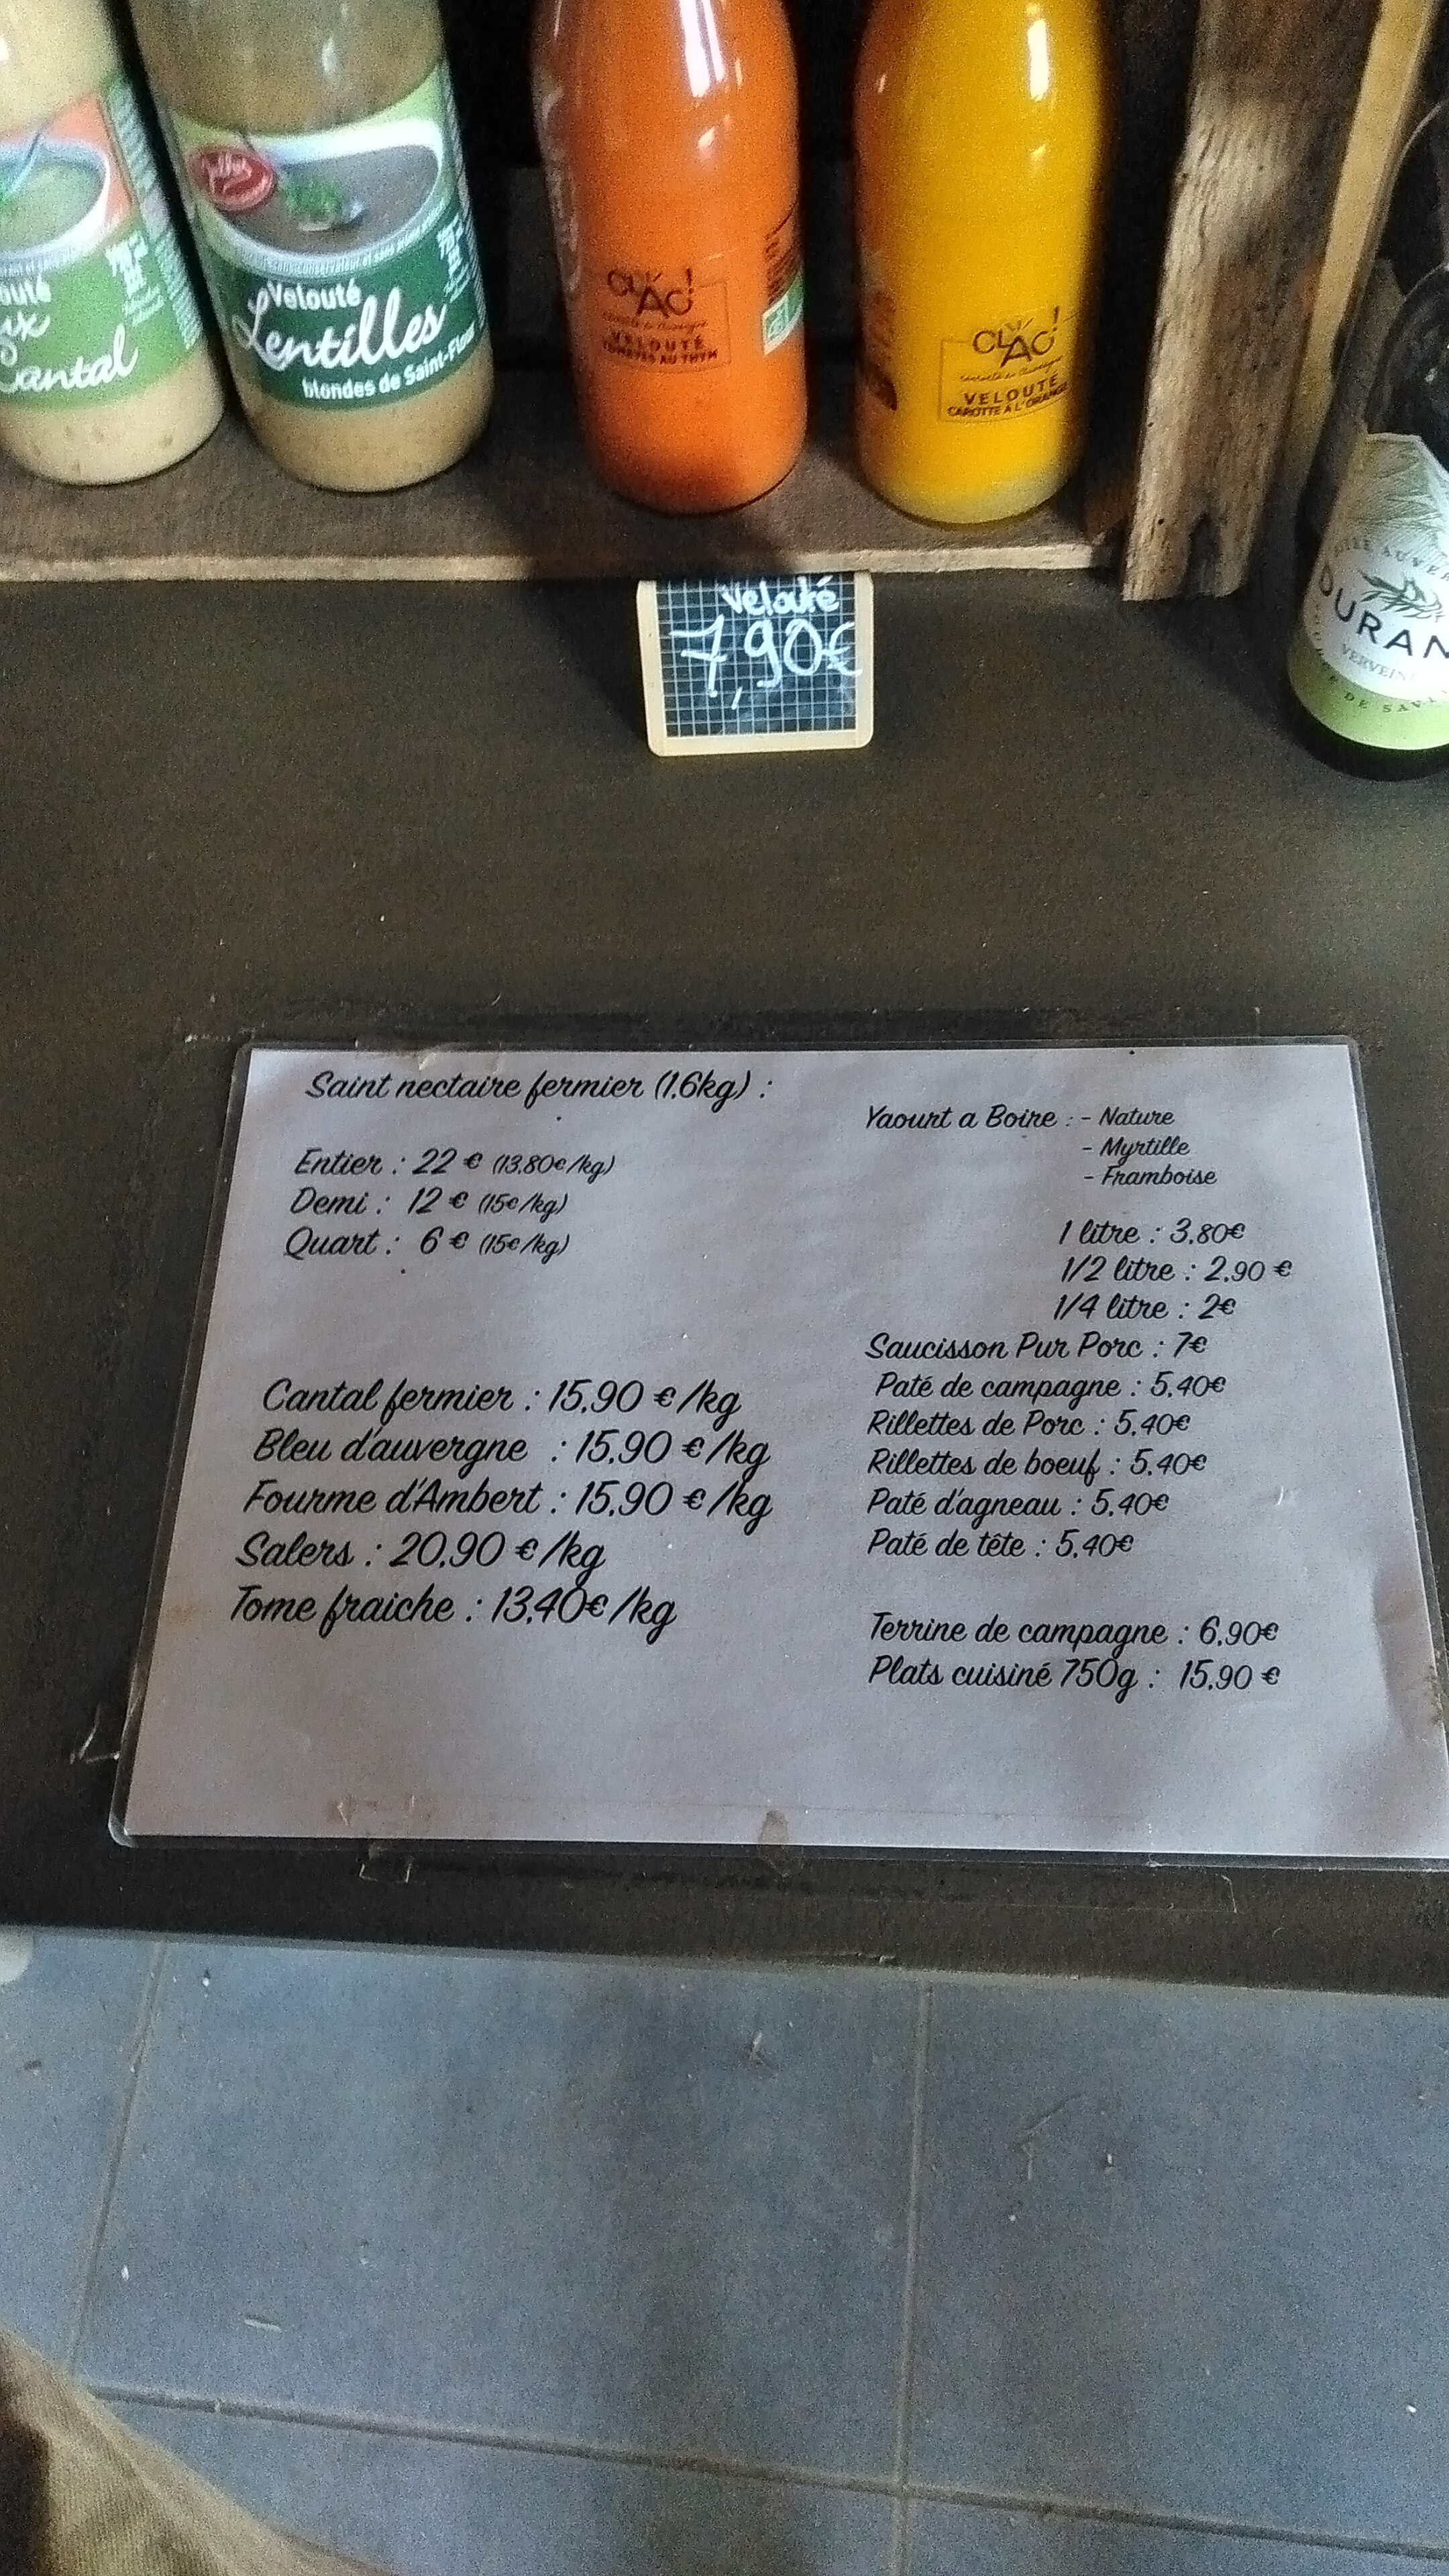 Velouté
Lentilles
blondes de Saint-Flour
Cantal
CLAC!
VELOUTÉ
TOMATES AU THYM
CLAC!
VELOUTÉ
CAROTTE À L'ORANGE
Velouté
7,90€
Saint nectaire fermier (1.6kg) :
Entier : 22 € (13.80€/kg)
Demi : 12 € (15€/kg)
Quart : 6 € (15€/kg)
Cantal fermier : 15,90 €/kg
Bleu d'auvergne : 15,90 €/kg
Fourme d'Ambert : 15,90 €/kg
Salers : 20,90 €/kg
Tome fraiche : 13,40€/kg
Yaourt a Boire : - Nature
- Myrtille
- Framboise
1 litre : 3,80€
1/2 litre : 2,90 €
1/4 litre : 2€
Saucisson Pur Porc : 7€
Paté de campagne : 5,40€
Rillettes de Porc : 5,40€
Rillettes de boeuf : 5,40€
Paté d'agneau : 5,40€
Paté de tête : 5,40€
Terrine de campagne : 6,90€
Plats cuisiné 750g : 15,90 €